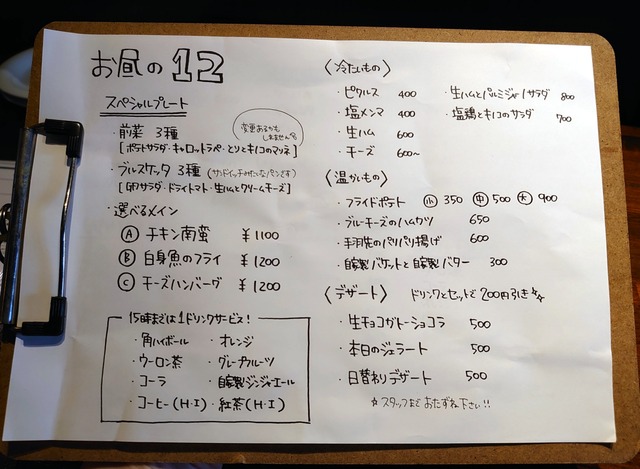 お昼の12
スペシャルプレート
変更あるかも
しれません
・前菜 3種
[ポテトサラダ・キャロットラペ・とりとキノコのマリネ]
・ブルスケッタ 3種 (サンドイッチみたいなパンです)
[卵サラダ・ドライトマト・生ハムとクリームチーズ]
・選べるメイン
Ⓐ チキン南蛮 ¥1100
Ⓑ 白身魚のフライ ¥1200
Ⓒ チーズハンバーグ ¥1200
15時までは1ドリンクサービス!
・角ハイボール ・オレンジ
・ウーロン茶 ・グレープフルーツ
・コーラ ・自家製ジンジャーエール
・コーヒー(H・I) ・紅茶(H・I)
〈冷たいもの〉
・ピクルス 400 ・生ハムとパルミジャーノサラダ 800
・塩メンマ 400 ・塩鶏とキノコのサラダ 700
・生ハム 600
・チーズ 600〜
〈温かいもの〉
・フライドポテト 小 350 中 500 大 900
・ブルーチーズのハムカツ 650
・手羽先のパリパリ揚げ 600
・自家製バケットと自家製バター 300
〈デザート〉 ドリンクとセットで200円引き☆☆
・生チョコガトーショコラ 500
・本日のジェラート 500
・日替わりデザート 500
☆スタッフまでおたずね下さい!!